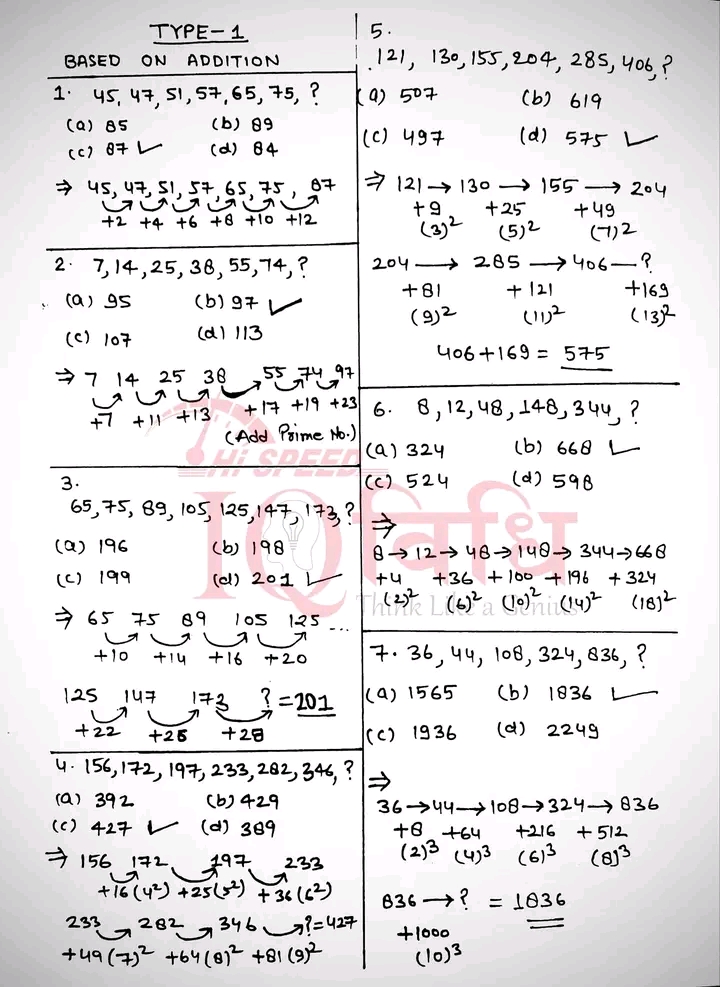 TYPE-1
BASED ON ADDITION
1. 45, 47, 51, 57, 65, 75, ?
(a) 85 (b) 89
(c) 87 ✓ (d) 84
⇒ 45, 47, 51, 57, 65, 75, 87
+2 +4 +6 +8 +10 +12
2. 7, 14, 25, 38, 55, 74, ?
(a) 95 (b) 97 ✓
(c) 107 (d) 113
⇒ 7 14 25 38 55 74 97
+7 +11 +13 +17 +19 +23
(Add Prime No.)
3.
65, 75, 89, 105, 125, 147, 173, ?
(a) 196 (b) 198
(c) 199 (d) 201 ✓
⇒ 65 75 89 105 125 ...
+10 +14 +16 +20
125 147 173 ? = 201
+22 +26 +28
4. 156, 172, 197, 233, 282, 346, ?
(a) 392 (b) 429
(c) 427 ✓ (d) 389
⇒ 156 172 197 233
+16(4²) +25(5²) +36(6²)
233 282 346 ? = 427
+49(7)² +64(8)² +81(9)²
5.
121, 130, 155, 204, 285, 406, ?
(a) 507 (b) 619
(c) 497 (d) 575 ✓
⇒ 121 → 130 → 155 → 204
+9 +25 +49
(3)² (5)² (7)²
204 → 285 → 406 — ?
+81 +121 +169
(9)² (11)² (13)²
406+169 = 575
6. 8, 12, 48, 148, 344, ?
(a) 324 (b) 668 ✓
(c) 524 (d) 598
⇒
8 → 12 → 48 → 148 → 344 → 668
+4 +36 +100 +196 +324
(2)² (6)² (10)² (14)² (18)²
7. 36, 44, 108, 324, 836, ?
(a) 1565 (b) 1836 ✓
(c) 1936 (d) 2249
⇒
36 → 44 → 108 → 324 → 836
+8 +64 +216 +512
(2)³ (4)³ (6)³ (8)³
836 → ? = 1836
+1000
(10)³
Hi SPEED
IQ विधि
Think Like a Genius